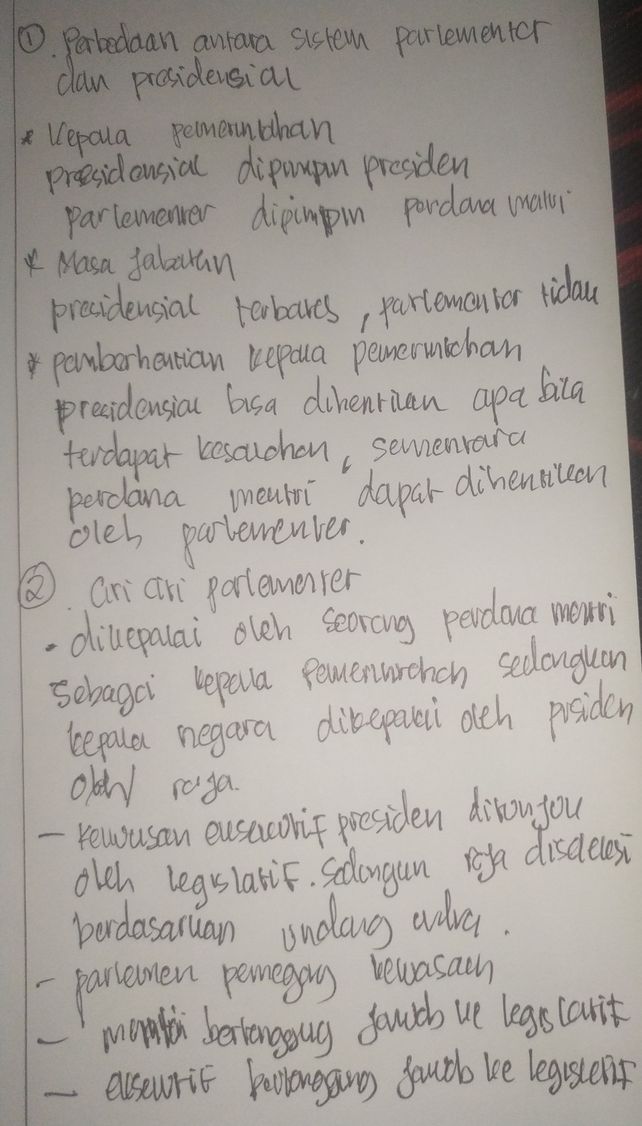 ① . Perbedaan antara sistem parlementer
dan presidensial
* Kepala pemerintahan
presidensial dipimpin presiden
parlementer dipimpin perdana mentri
* Masa Jabatan
presidensial terbatas, parlementer tidak
* pemberhentian kepala pemerintahan
presidensial bisa dihentikan apa bila
terdapat kesalahan, sementara
perdana mentri dapat dihentikan
oleh parlementer.
② . Ciri ciri parlementer
- dikepalai oleh seorang perdana mentri
sebagai kepala pemerintahan sedangkan
kepala negara dikepalai oleh prsiden
raja.
- kekuasan eksekutif presiden ditunjuk
oleh legislatif. Sedangkan raja diseleksi
berdasarkan undang
- parlemen pemegang kekuasaan
- mentri bertanggung jawab ke legislatif
- eksekutif bertanggung jawab ke legislatif